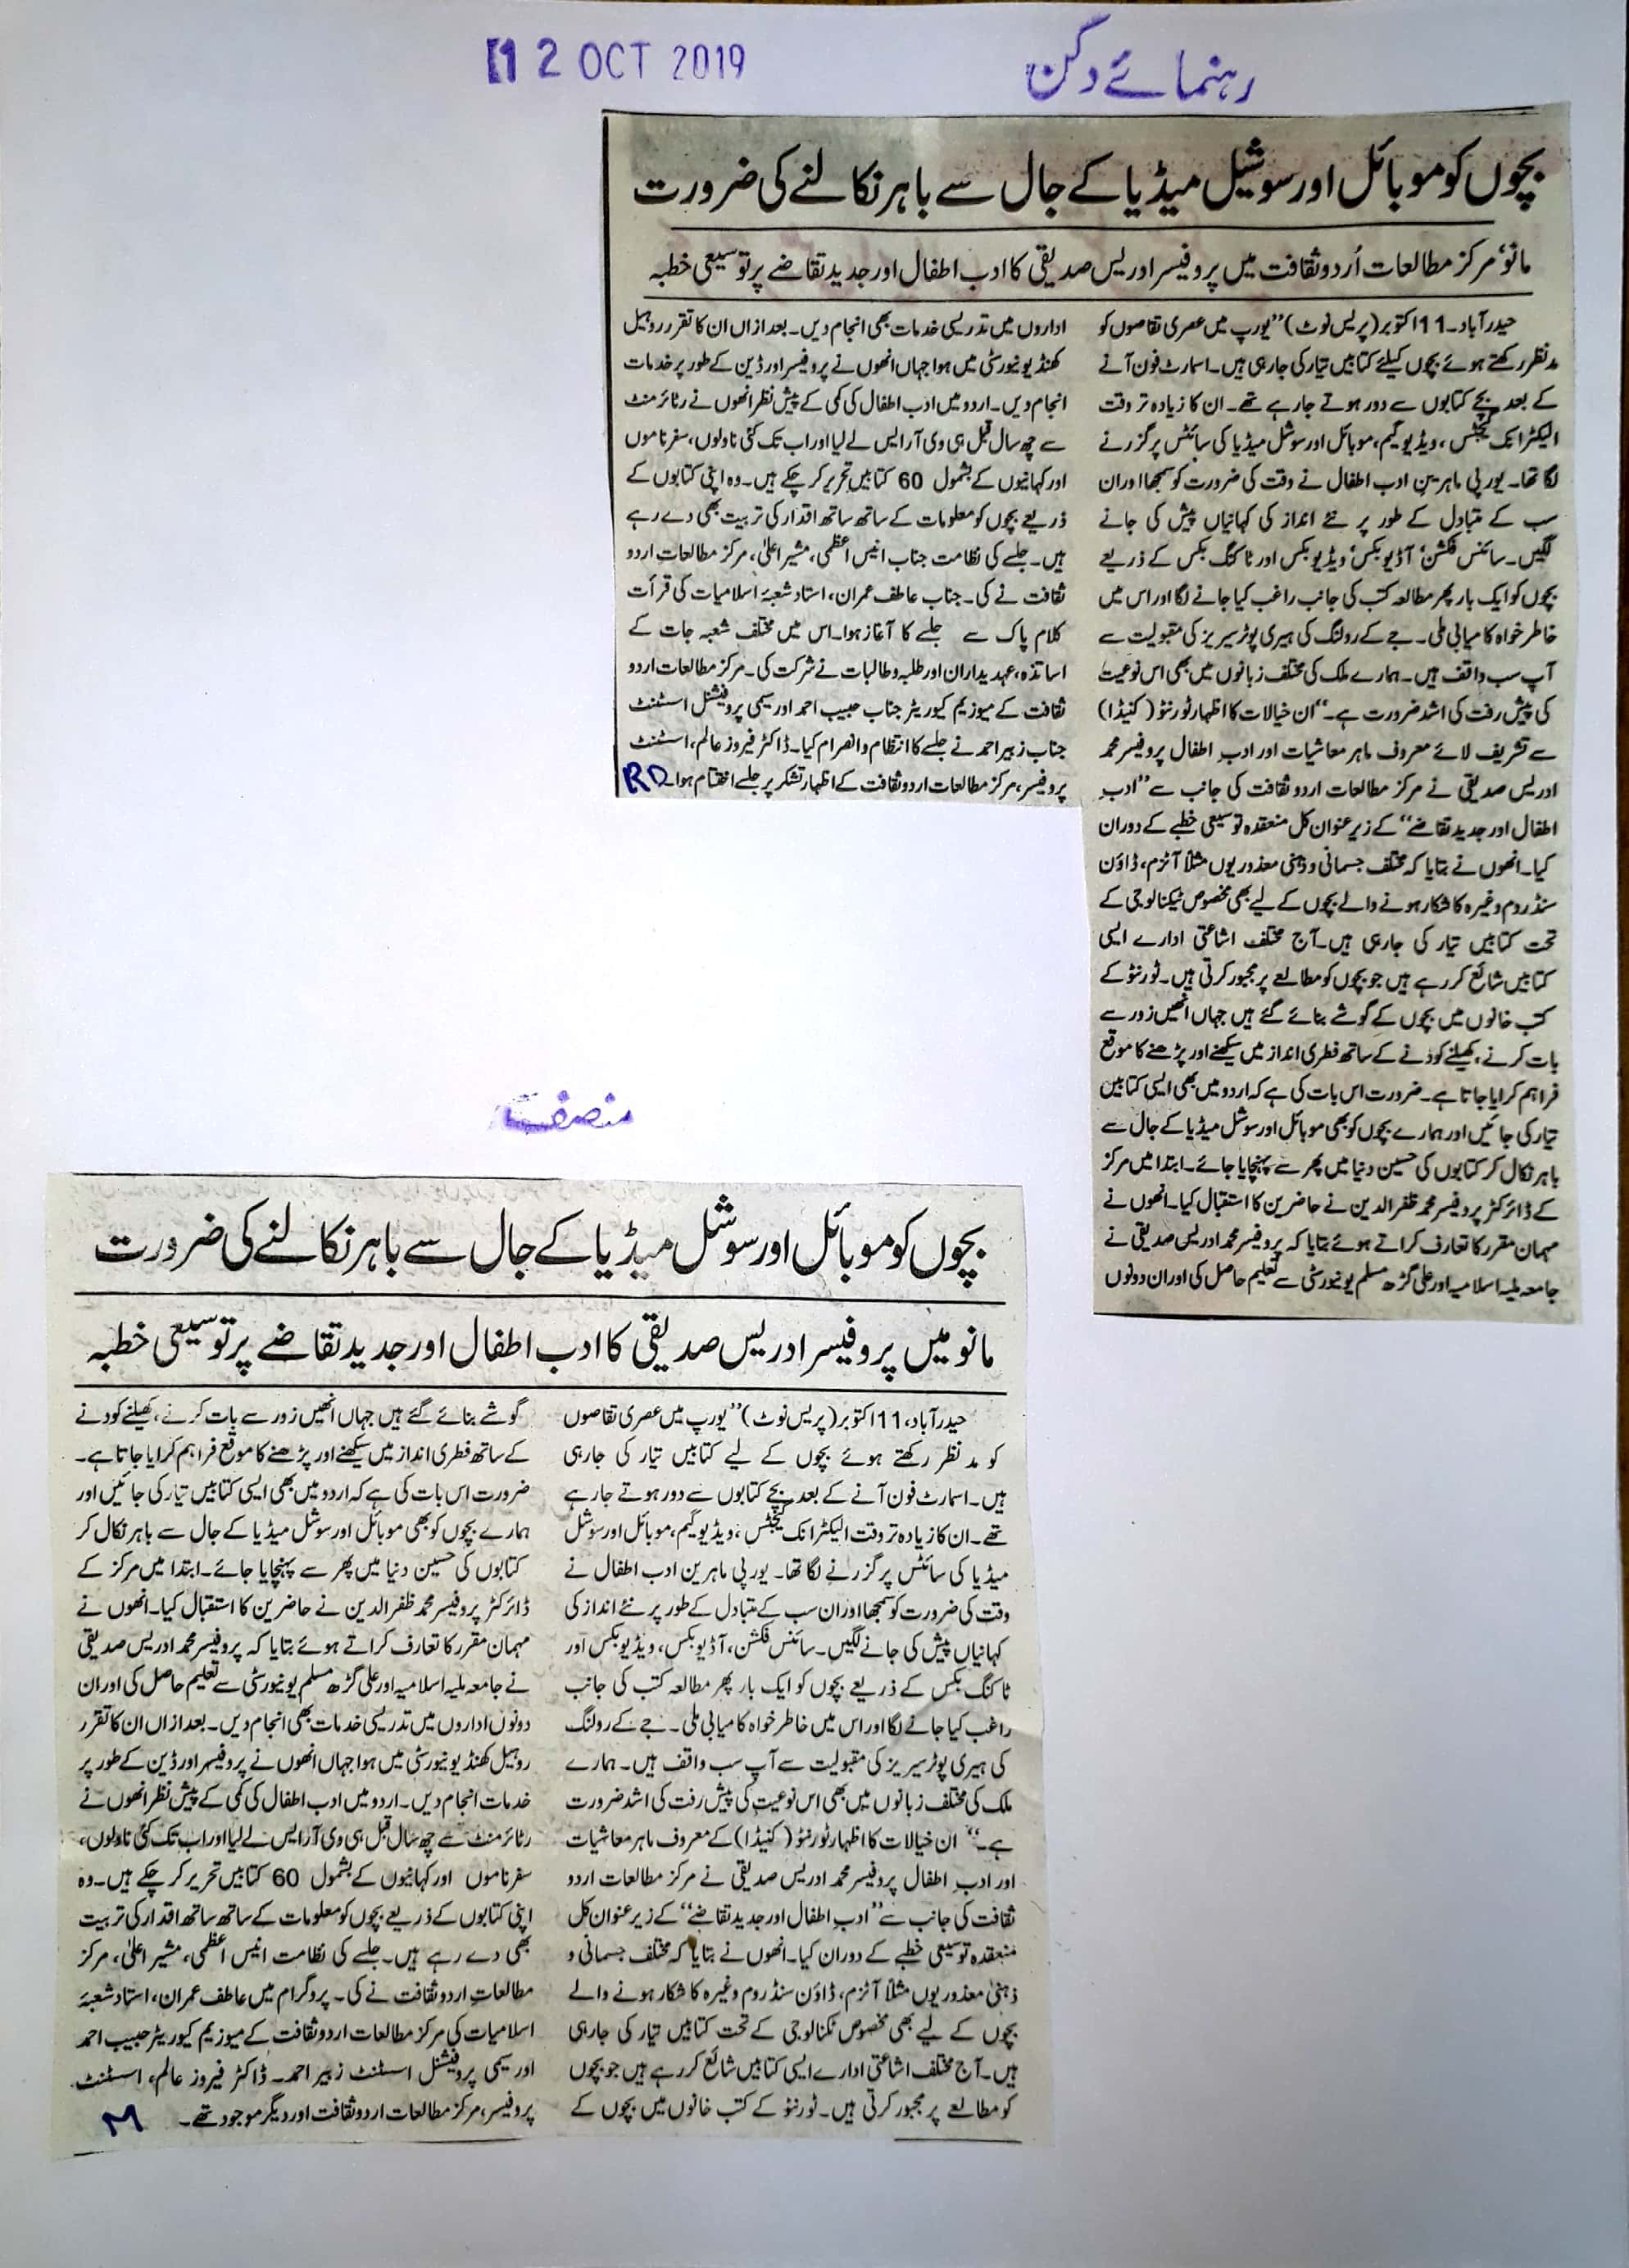 12 OCT 2019
رہنمائے دکن
بچوں کو موبائل اور سوشیل میڈیا کے جال سے باہر نکالنے کی ضرورت
مانو‘ مرکز مطالعات اُردو ثقافت میں پروفیسر ادریس صدیقی کا ادب اطفال اور جدید تقاضے پر توسیعی خطبہ
حیدرآباد۔ 11 اکتوبر (پریس نوٹ) ’’یورپ میں عصری تقاضوں کو
مد نظر رکھتے ہوئے بچوں کیلئے کتابیں تیار کی جارہی ہیں۔ اسمارٹ فون آنے
کے بعد بچے کتابوں سے دور ہوتے جارہے تھے۔ ان کا زیادہ تر وقت
الیکٹرانک گیجٹس، ویڈیو گیم، موبائل اور سوشل میڈیا کی سائٹس پر گزرنے
لگا تھا۔ یورپی ماہرین ادب اطفال نے وقت کی ضرورت کو سمجھا اور ان
سب کے متبادل کے طور پر نئے انداز کی کہانیاں پیش کی جانے
لگیں۔ سائنس فکشن‘ آڈیو بکس‘ ویڈیو بکس اور ٹاکنگ بکس کے ذریعے
بچوں کو ایک بار پھر مطالعہ کتب کی جانب راغب کیا جانے لگا اور اس میں
خاطر خواہ کامیابی ملی۔ جے کے رولنگ کی ہیری پوٹر سیریز کی مقبولیت سے
آپ سب واقف ہیں۔ ہمارے ملک کی مختلف زبانوں میں بھی اس نوعیت
کی پیش رفت کی اشد ضرورت ہے۔‘‘ ان خیالات کا اظہار ٹورنٹو (کنیڈا)
سے تشریف لائے معروف ماہر معاشیات اور ادبِ اطفال پروفیسر محمد
ادریس صدیقی نے مرکز مطالعات اردو ثقافت کی جانب سے ’’ادبِ
اطفال اور جدید تقاضے‘‘ کے زیر عنوان کل منعقدہ توسیعی خطبے کے دوران
کیا۔ انھوں نے بتایا کہ مختلف جسمانی و ذہنی معذوریوں مثلاً آٹزم، ڈاؤن
سنڈروم وغیرہ کا شکار ہونے والے بچوں کے لیے بھی مخصوص ٹیکنالوجی کے
تحت کتابیں تیار کی جارہی ہیں۔ آج مختلف اشاعتی ادارے ایسی
کتابیں شائع کررہے ہیں جو بچوں کو مطالعے پر مجبور کرتی ہیں۔ ٹورنٹو کے
کتب خانوں میں بچوں کے گوشے بنائے گئے ہیں جہاں انھیں زور سے
بات کرنے، کھیلنے کودنے کے ساتھ فطری انداز میں سیکھنے اور پڑھنے کا موقع
فراہم کرایا جاتا ہے۔ ضرورت اس بات کی ہے کہ اردو میں بھی ایسی کتابیں
تیار کی جائیں اور ہمارے بچوں کو بھی موبائل اور سوشل میڈیا کے جال سے
باہر نکال کر کتابوں کی حسین دنیا میں پھر سے پہنچایا جائے۔ ابتدا میں مرکز
کے ڈائرکٹر پروفیسر محمد ظفر الدین نے حاضرین کا استقبال کیا۔ انھوں نے
مہمان مقرر کا تعارف کراتے ہوئے بتایا کہ پروفیسر محمد ادریس صدیقی نے
جامعہ ملیہ اسلامیہ اور علی گڑھ مسلم یونیورسٹی سے تعلیم حاصل کی اور ان دونوں
اداروں میں تدریسی خدمات بھی انجام دیں۔ بعد ازاں ان کا تقرر روہیل
کھنڈ یونیورسٹی میں ہوا جہاں انھوں نے پروفیسر اور ڈین کے طور پر خدمات
انجام دیں۔ اردو میں ادب اطفال کی کمی کے پیش نظر انھوں نے رٹائرمنٹ
سے چھ سال قبل ہی وی آر ایس لے لیا اور اب تک کئی ناولوں، سفرناموں
اور کہانیوں کے بشمول 60 کتابیں تحریر کرچکے ہیں۔ وہ اپنی کتابوں کے
ذریعے بچوں کو معلومات کے ساتھ ساتھ اقدار کی تربیت بھی دے رہے
ہیں۔ جلسے کی نظامت جناب انیس اعظمی، مشیر اعلیٰ، مرکز مطالعات اردو
ثقافت نے کی۔ جناب عاطف عمران، استاد شعبۂ اسلامیات کی قرأت
کلام پاک سے جلسے کا آغاز ہوا۔ اس میں مختلف شعبہ جات کے
اساتذہ، عہدیداران اور طلبہ و طالبات نے شرکت کی۔ مرکز مطالعات اردو
ثقافت کے میوزیم کیوریٹر جناب حبیب احمد اور سیمی پروفیشنل اسسٹنٹ
جناب زبیر احمد نے جلسے کا انتظام و انصرام کیا۔ ڈاکٹر فیروز عالم، اسسٹنٹ
پروفیسر، مرکز مطالعات اردو ثقافت کے اظہار تشکر پر جلسے اختتام ہوا۔
RD
منصف
بچوں کو موبائل اور سوشل میڈیا کے جال سے باہر نکالنے کی ضرورت
مانو میں پروفیسر ادریس صدیقی کا ادب اطفال اور جدید تقاضے پر توسیعی خطبہ
حیدرآباد، 11 اکتوبر (پریس نوٹ) ’’یورپ میں عصری تقاضوں
کو مد نظر رکھتے ہوئے بچوں کے لیے کتابیں تیار کی جارہی
ہیں۔ اسمارٹ فون آنے کے بعد بچے کتابوں سے دور ہوتے جارہے
تھے۔ ان کا زیادہ تر وقت الیکٹرانک گیجٹس، ویڈیو گیم، موبائل اور سوشل
میڈیا کی سائٹس پر گزرنے لگا تھا۔ یورپی ماہرین ادب اطفال نے
وقت کی ضرورت کو سمجھا اور ان سب کے متبادل کے طور پر نئے انداز کی
کہانیاں پیش کی جانے لگیں۔ سائنس فکشن، آڈیو بکس، ویڈیو بکس اور
ٹاکنگ بکس کے ذریعے بچوں کو ایک بار پھر مطالعہ کتب کی جانب
راغب کیا جانے لگا اور اس میں خاطر خواہ کامیابی ملی۔ جے کے رولنگ
کی ہیری پوٹر سیریز کی مقبولیت سے آپ سب واقف ہیں۔ ہمارے
ملک کی مختلف زبانوں میں بھی اس نوعیت کی پیش رفت کی اشد ضرورت
ہے۔‘‘ ان خیالات کا اظہار ٹورنٹو (کنیڈا) کے معروف ماہر معاشیات
اور ادبِ اطفال پروفیسر محمد ادریس صدیقی نے مرکز مطالعات اردو
ثقافت کی جانب سے ’’ادب اطفال اور جدید تقاضے‘‘ کے زیر عنوان کل
منعقدہ توسیعی خطبے کے دوران کیا۔ انھوں نے بتایا کہ مختلف جسمانی و
ذہنی معذوریوں مثلاً آٹزم، ڈاؤن سنڈروم وغیرہ کا شکار ہونے والے
بچوں کے لیے بھی مخصوص ٹکنالوجی کے تحت کتابیں تیار کی جارہی
ہیں۔ آج مختلف اشاعتی ادارے ایسی کتابیں شائع کررہے ہیں جو بچوں
کو مطالعے پر مجبور کرتی ہیں۔ ٹورنٹو کے کتب خانوں میں بچوں کے
گوشے بنائے گئے ہیں جہاں انھیں زور سے بات کرنے، کھیلنے کودنے
کے ساتھ فطری انداز میں سیکھنے اور پڑھنے کا موقع فراہم کرایا جاتا ہے۔
ضرورت اس بات کی ہے کہ اردو میں بھی ایسی کتابیں تیار کی جائیں اور
ہمارے بچوں کو بھی موبائل اور سوشل میڈیا کے جال سے باہر نکال کر
کتابوں کی حسین دنیا میں پھر سے پہنچایا جائے۔ ابتدا میں مرکز کے
ڈائرکٹر پروفیسر محمد ظفر الدین نے حاضرین کا استقبال کیا۔ انھوں نے
مہمان مقرر کا تعارف کراتے ہوئے بتایا کہ پروفیسر محمد ادریس صدیقی
نے جامعہ ملیہ اسلامیہ اور علی گڑھ مسلم یونیورسٹی سے تعلیم حاصل کی اور ان
دونوں اداروں میں تدریسی خدمات بھی انجام دیں۔ بعد ازاں ان کا تقرر
روہیل کھنڈ یونیورسٹی میں ہوا جہاں انھوں نے پروفیسر اور ڈین کے طور پر
خدمات انجام دیں۔ اردو میں ادب اطفال کی کمی کے پیش نظر انھوں نے
رٹائرمنٹ سے چھ سال قبل ہی وی آر ایس لے لیا اور اب تک کئی ناولوں،
سفرناموں اور کہانیوں کے بشمول 60 کتابیں تحریر کرچکے ہیں۔ وہ
اپنی کتابوں کے ذریعے بچوں کو معلومات کے ساتھ ساتھ اقدار کی تربیت
بھی دے رہے ہیں۔ جلسے کی نظامت انیس اعظمی، مشیر اعلیٰ، مرکز
مطالعات اردو ثقافت نے کی۔ پروگرام میں عاطف عمران، استاد شعبۂ
اسلامیات کی مرکز مطالعات اردو ثقافت کے میوزیم کیوریٹر حبیب احمد
اور سیمی پروفیشنل اسسٹنٹ زبیر احمد۔ ڈاکٹر فیروز عالم، اسسٹنٹ
پروفیسر، مرکز مطالعات اردو ثقافت اور دیگر موجود تھے۔
M